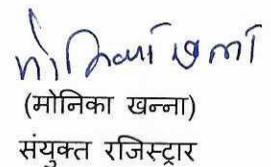 मोनिका खन्ना
(मोनिका खन्ना)
संयुक्त रजिस्ट्रार